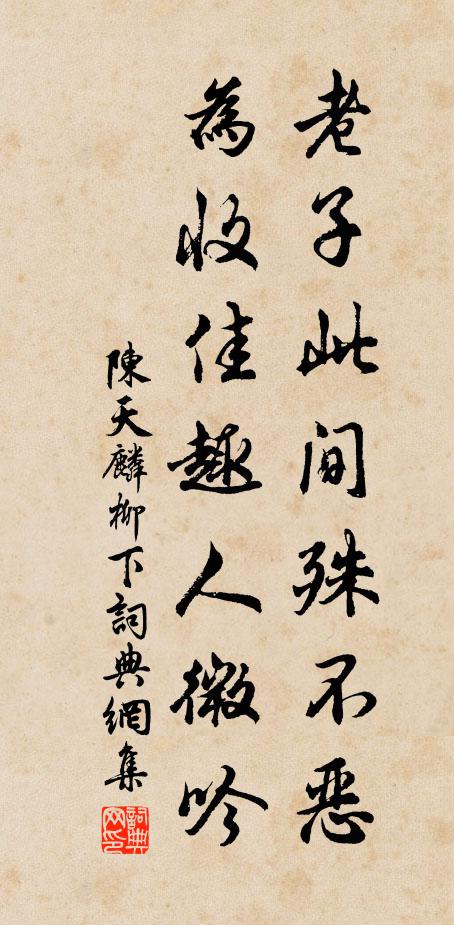 老子此間殊不惡
為收佳趣人微吟
陳天麟柳下詞典網集
詞典网印